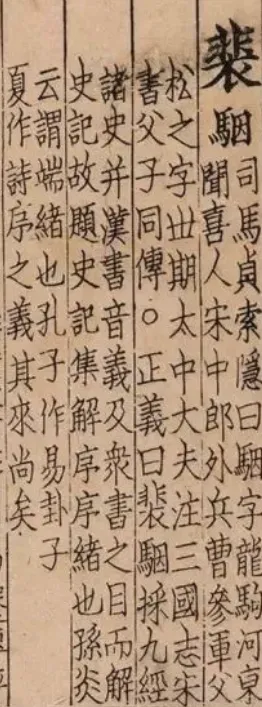 裴駰
司馬貞索隱曰駰字龍駒河東
聞喜人宋中郎外兵曹參軍父
松之字丗期太中大夫注三國志宋
書父子同傳○正義曰裴駰採九經
諸史并漢書音義及衆書之目而解
史記故題史記集解序序緒也孫炎
云謂端緒也孔子作易卦子
夏作詩序之義其來尚矣